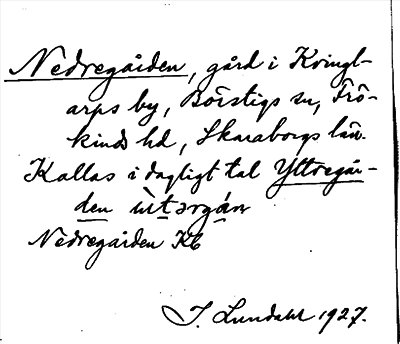 Nedregården, gård i Kvingt-
arps by, Börstigs sn, Frö-
kinds hd, Skaraborgs län.
Kallas i dagligt tal Yttregår-
den ùt ərgån
Nedregården Kb
J. Lundahl 1927.